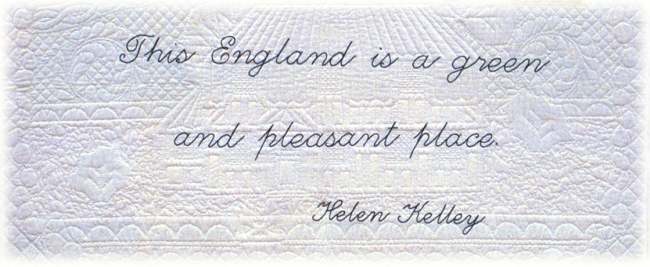 This England is a green
and pleasant place.
Helen Kelley